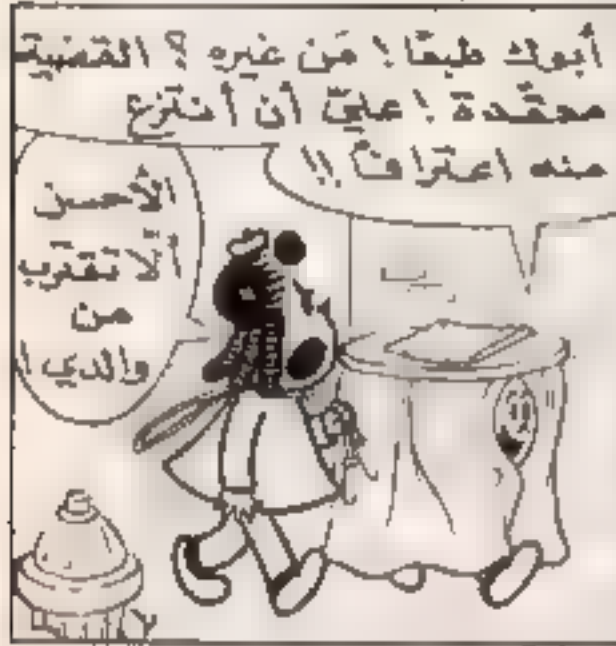 أبوك طبعًا! مَن غيره؟ القضية
معقّدة! عليّ أن أنتزع
منه اعترافًا!!
الأحسن
ألّا تقترب
من
والدي!